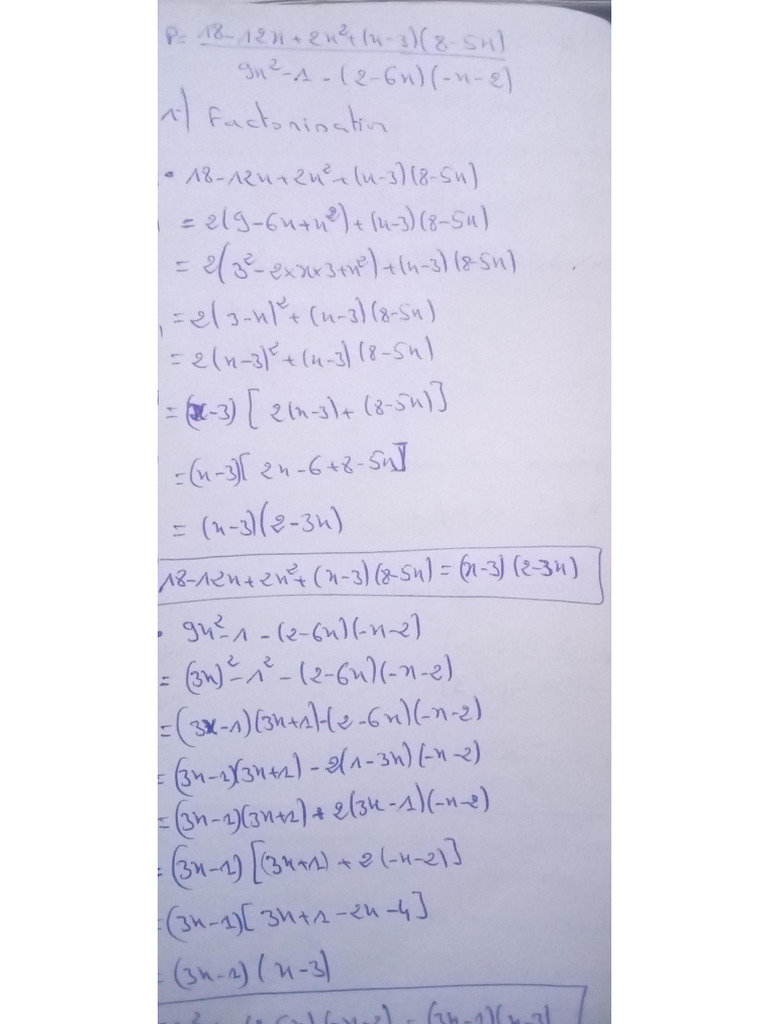 P = (18-12x+2x²+(x-3)(8-5x))/(9x²-1-(2-6x)(-x-2))
1) Factorisation
• 18-12x+2x²+(x-3)(8-5x)
= 2(9-6x+x²)+(x-3)(8-5x)
= 2(3²-2×x×3+x²)+(x-3)(8-5x)
= 2(3-x)²+(x-3)(8-5x)
= 2(x-3)²+(x-3)(8-5x)
= (x-3)[2(x-3)+(8-5x)]
= (x-3)[2x-6+8-5x]
= (x-3)(2-3x)
18-12x+2x²+(x-3)(8-5x)=(x-3)(2-3x)
• 9x²-1-(2-6x)(-x-2)
= (3x)²-1²-(2-6x)(-x-2)
= (3x-1)(3x+1)-(2-6x)(-x-2)
= (3x-1)(3x+1)-2(1-3x)(-x-2)
= (3x-1)(3x+1)+2(3x-1)(-x-2)
= (3x-1)[(3x+1)+2(-x-2)]
= (3x-1)[3x+1-2x-4]
= (3x-1)(x-3)